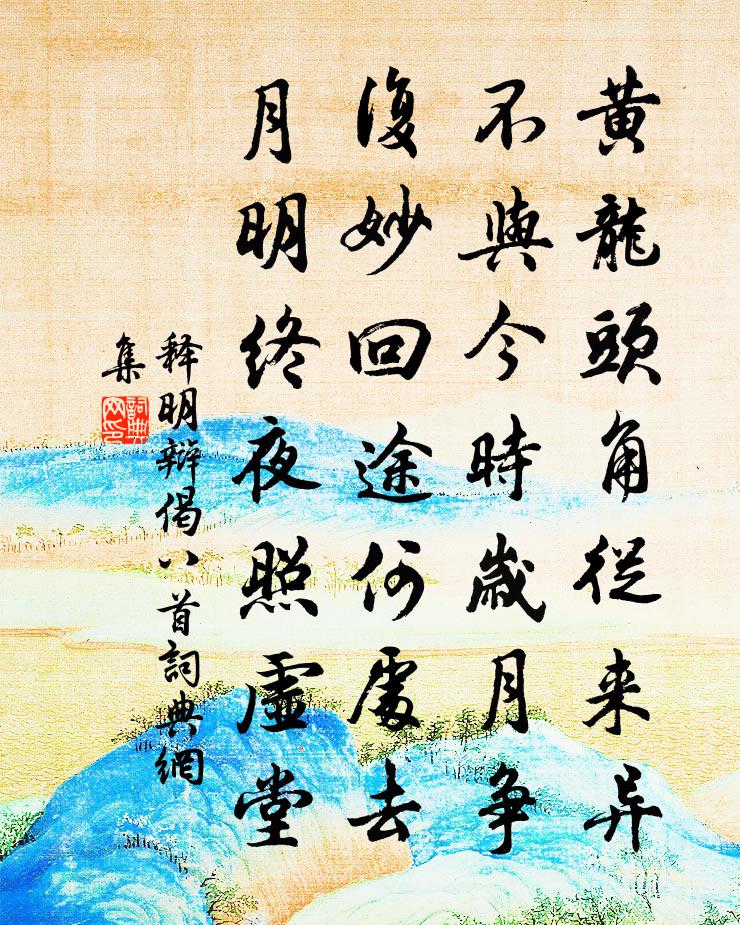 黄龍頭角從来异
不與今時歳月争
復妙回途何處去
月明终夜照虛堂
释明辯偈八首詞典網
集
詞典網印